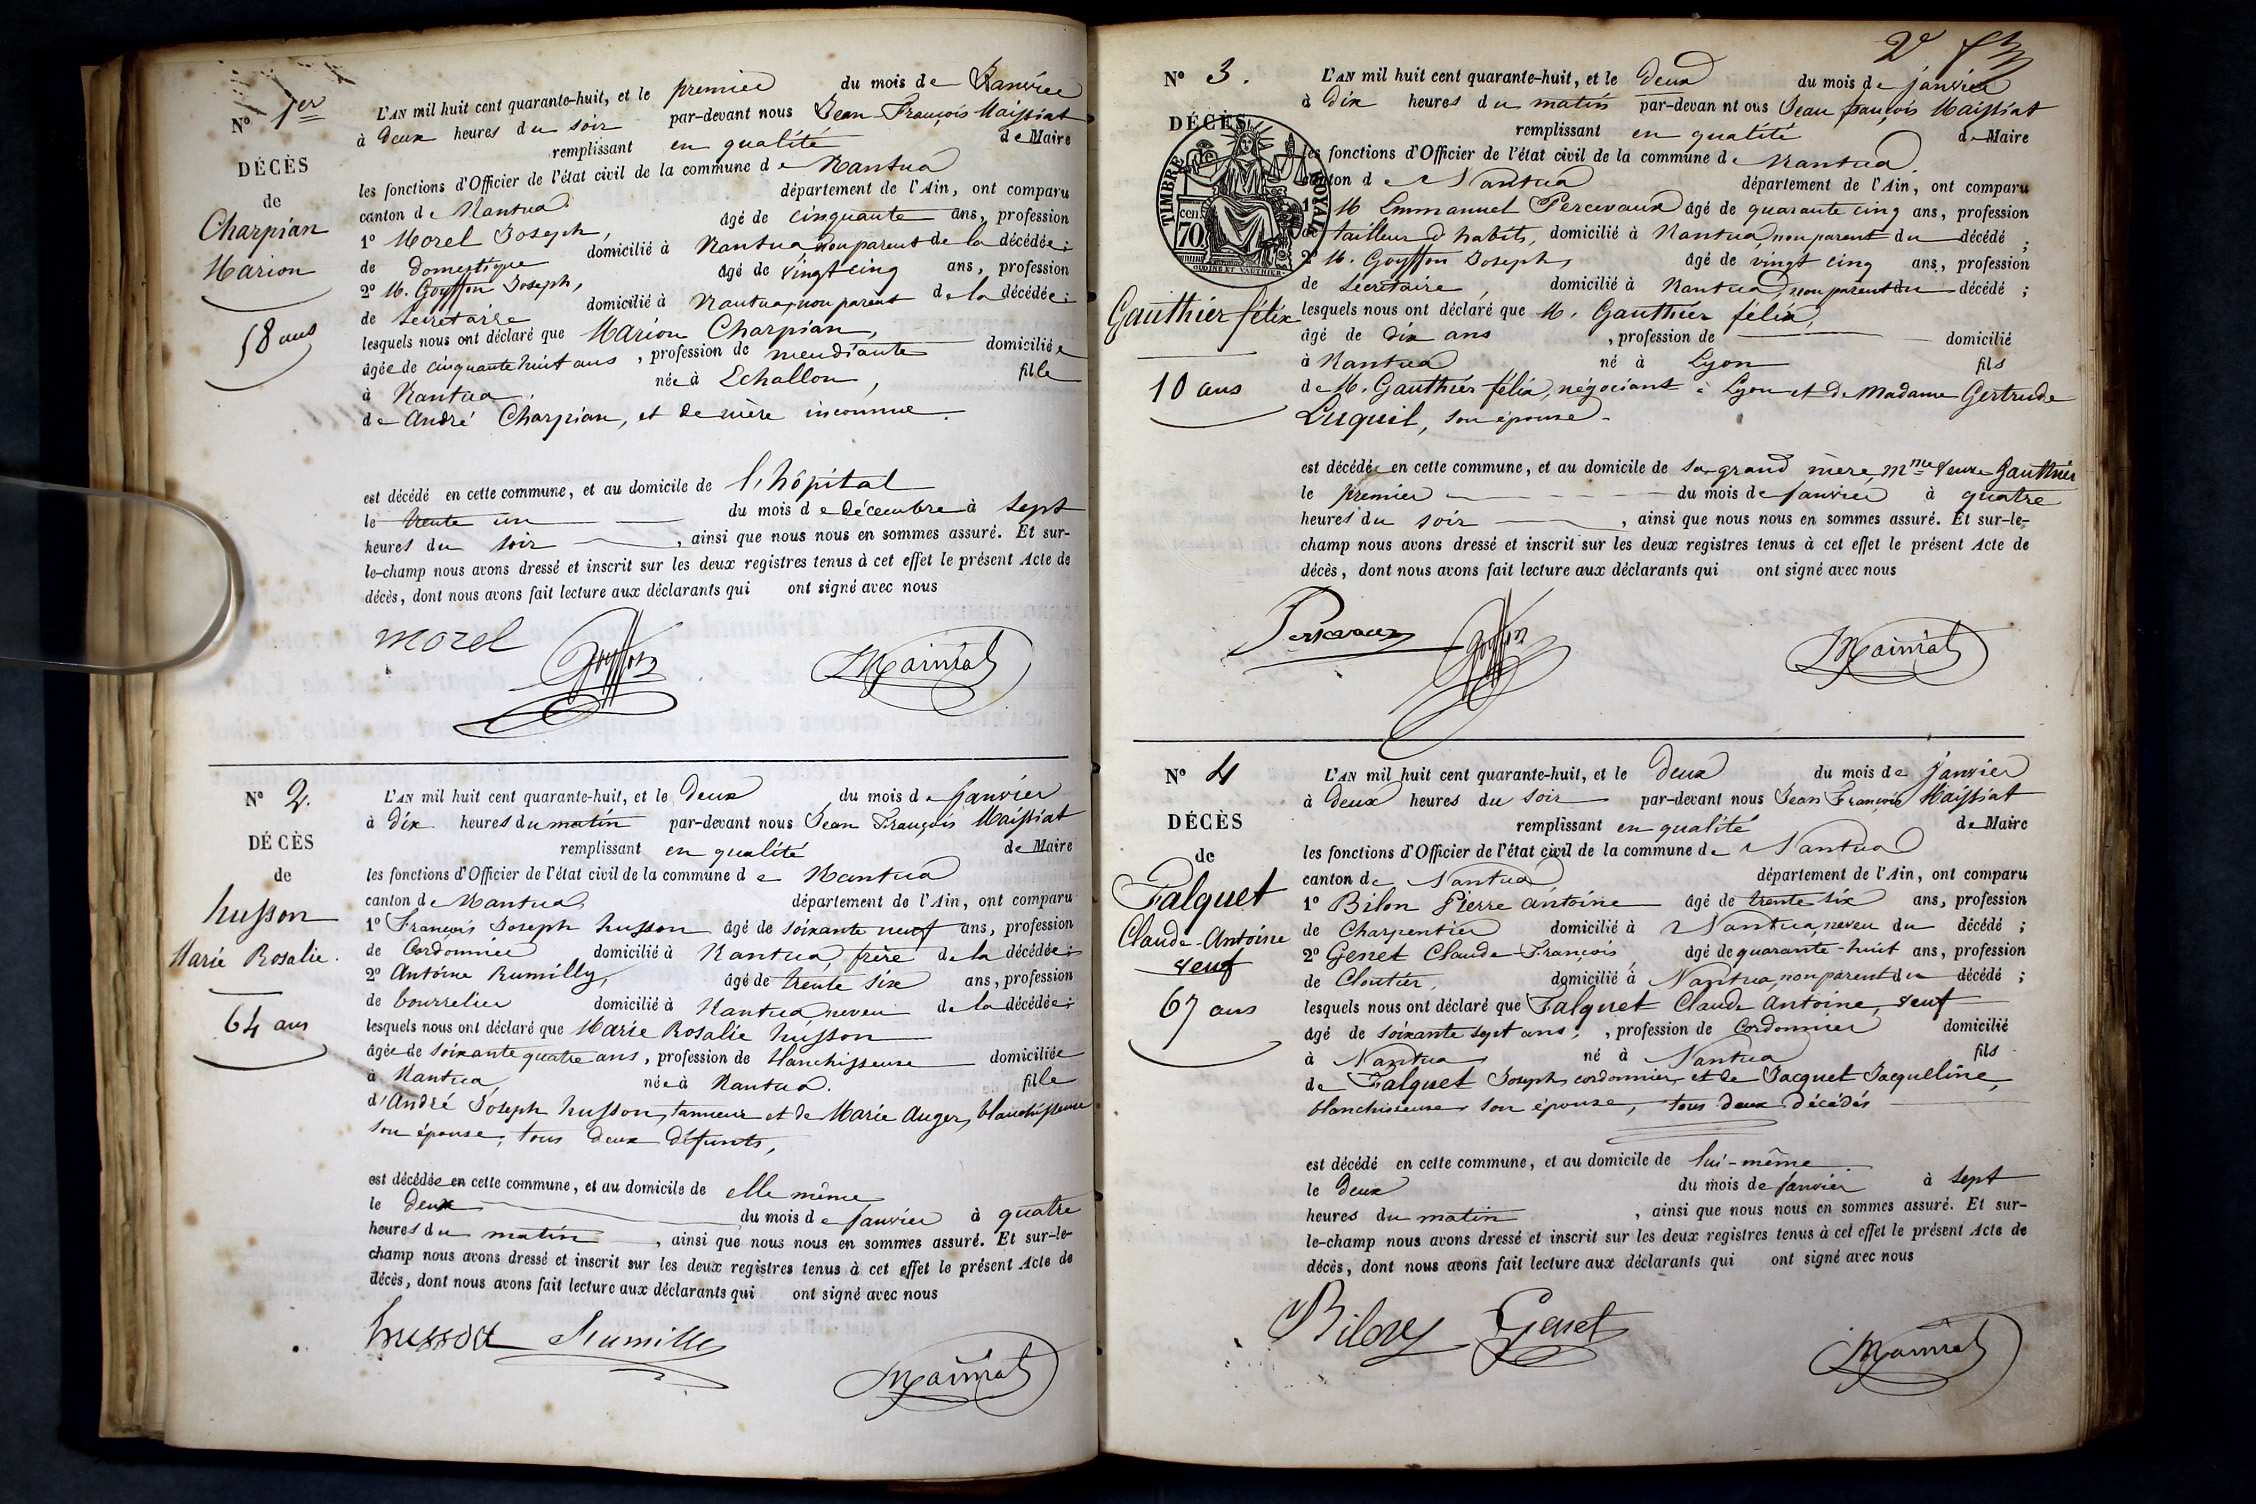 Nº 1er
DÉCÈS
de
Charpian
Marion
58 ans
L'AN mil huit cent quarante-huit, et le premier du mois de Janvier
à deux heures du soir par-devant nous Jean François Maissiat
remplissant en qualité de Maire
les fonctions d'Officier de l'état civil de la commune de Nantua
canton de Nantua département de l'Ain, ont comparu
1º Morel Joseph, âgé de cinquante ans, profession
de domestique domicilié à Nantua, non parent de la décédée ;
2º M. Goyffon Joseph, âgé de vingt cinq ans, profession
de Secrétaire domicilié à Nantua, non parent de la décédée ;
lesquels nous ont déclaré que Marion Charpian,
âgée de cinquante huit ans, profession de mendiante domiciliée
à Nantua, née à Echallon, fille
de André Charpian, et de mère inconnue.
est décédé en cette commune, et au domicile de l'hôpital
le trente un du mois de décembre à sept
heures du soir, ainsi que nous nous en sommes assuré. Et sur-
le-champ nous avons dressé et inscrit sur les deux registres tenus à cet effet le présent Acte de
décès, dont nous avons fait lecture aux déclarants qui ont signé avec nous
morel Goyffon Maissiat
Nº 2.
DÉCÈS
de
husson
Marie Rosalie.
64 ans
L'AN mil huit cent quarante-huit, et le deux du mois de Janvier
à dix heures du matin par-devant nous Jean François Maissiat
remplissant en qualité de Maire
les fonctions d'Officier de l'état civil de la commune de Nantua
canton de Nantua département de l'Ain, ont comparu
1º François Joseph husson âgé de soixante neuf ans, profession
de Cordonnier domicilié à Nantua, frère de la décédée ;
2º Antoine Rumilly, âgé de trente six ans, profession
de bourrelier domicilié à Nantua neveu de la décédée ;
lesquels nous ont déclaré que Marie Rosalie husson
âgée de soixante quatre ans, profession de blanchisseuse domiciliée
à Nantua, née à Nantua. fille
d'André Joseph husson, tanneur et de Marie Auger, blanchisseuse
son épouse, tous deux défunts,
est décédée en cette commune, et au domicile de elle même
le deux du mois de janvier à quatre
heures du matin, ainsi que nous nous en sommes assuré. Et sur-le-
champ nous avons dressé et inscrit sur les deux registres tenus à cet effet le présent Acte de
décès, dont nous avons fait lecture aux déclarants qui ont signé avec nous
husson Rumilly
Maissiat
2e
Nº 3.
DÉCÈS
TIMBRE ROYAL
70 cen.
Gauthier félix
10 ans
L'AN mil huit cent quarante-huit, et le deux du mois de janvier
à dix heures du matin par-devan nt ous Jean françois Maissiat
remplissant en qualité de Maire
les fonctions d'Officier de l'état civil de la commune de Nantua
canton de Nantua département de l'Ain, ont comparu
1º M Emmanuel Percevaux âgé de quarante cinq ans, profession
de tailleur d'habits, domicilié à Nantua, non parent du décédé ;
2º M. Goyffon Joseph, âgé de vingt cinq ans, profession
de Secrétaire, domicilié à Nantua, non parent du décédé ;
lesquels nous ont déclaré que M. Gauthier félix,
âgé de dix ans, profession de domicilié
à Nantua né à Lyon fils
de M. Gauthier félix, négociant à Lyon et de Madame Gertrude
Luquil, son épouse.
est décédé en cette commune, et au domicile de sa grand mère, Mme Veuve Gauthier
le premier du mois de janvier à quatre
heures du soir, ainsi que nous nous en sommes assuré. Et sur-le-
champ nous avons dressé et inscrit sur les deux registres tenus à cet effet le présent Acte de
décès, dont nous avons fait lecture aux déclarants qui ont signé avec nous
Percevaux Goyffon Maissiat
Nº 4
DÉCÈS
de
Falquet
Claude-Antoine
veuf
67 ans
L'AN mil huit cent quarante-huit, et le deux du mois de Janvier
à deux heures du soir par-devant nous Jean François Maissiat
remplissant en qualité de Maire
les fonctions d'Officier de l'état civil de la commune de Nantua
canton de Nantua département de l'Ain, ont comparu
1º Bilon Pierre Antoine âgé de trente six ans, profession
de Charpentier domicilié à Nantua, neveu du décédé ;
2º Genet Claude-François, âgé de quarante-huit ans, profession
de Cloutier, domicilié à Nantua, non parent du décédé ;
lesquels nous ont déclaré que Falquet Claude Antoine, veuf
âgé de soixante sept ans ; , profession de Cordonnier domicilié
à Nantua né à Nantua fils
de Falquet Joseph, cordonnier, et de Jacquet Jacqueline,
blanchisseuse, son épouse, tous deux décédés
est décédé en cette commune, et au domicile de lui-même
le deux du mois de janvier à sept
heures du matin, ainsi que nous nous en sommes assuré. Et sur-
le-champ nous avons dressé et inscrit sur les deux registres tenus à cet effet le présent Acte de
décès, dont nous avons fait lecture aux déclarants qui ont signé avec nous
Bilon Genet
Maissiat